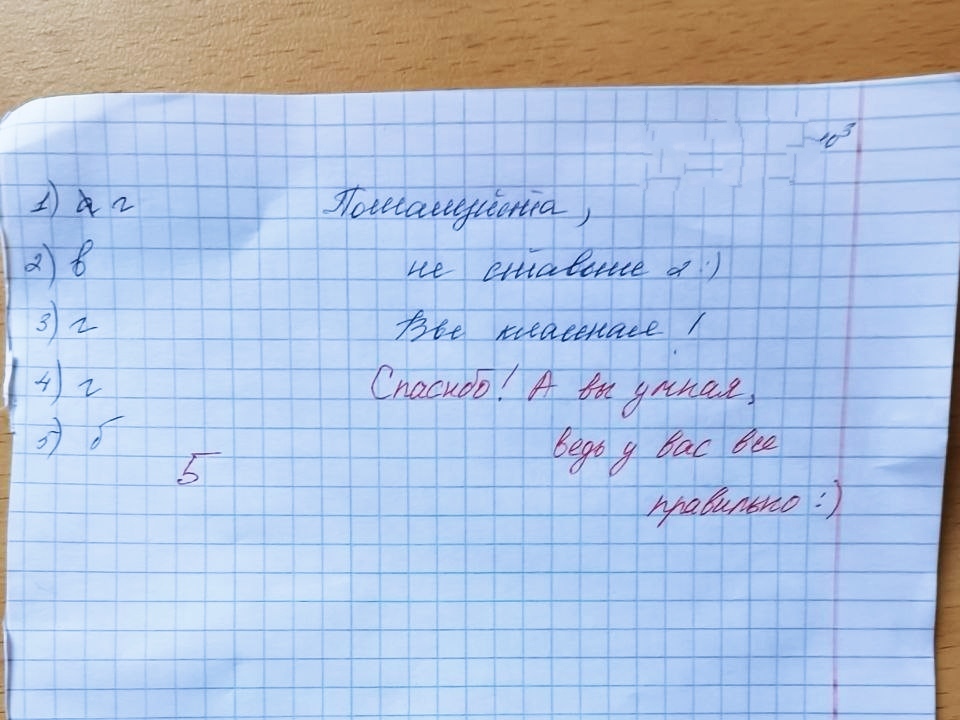 1) г
Пожалуйста,
2) в
не ставьте 2 :)
3) г
Вы классная!
4) г
Спасибо! А вы умная,
5) б
ведь у вас все
5
правильно :)